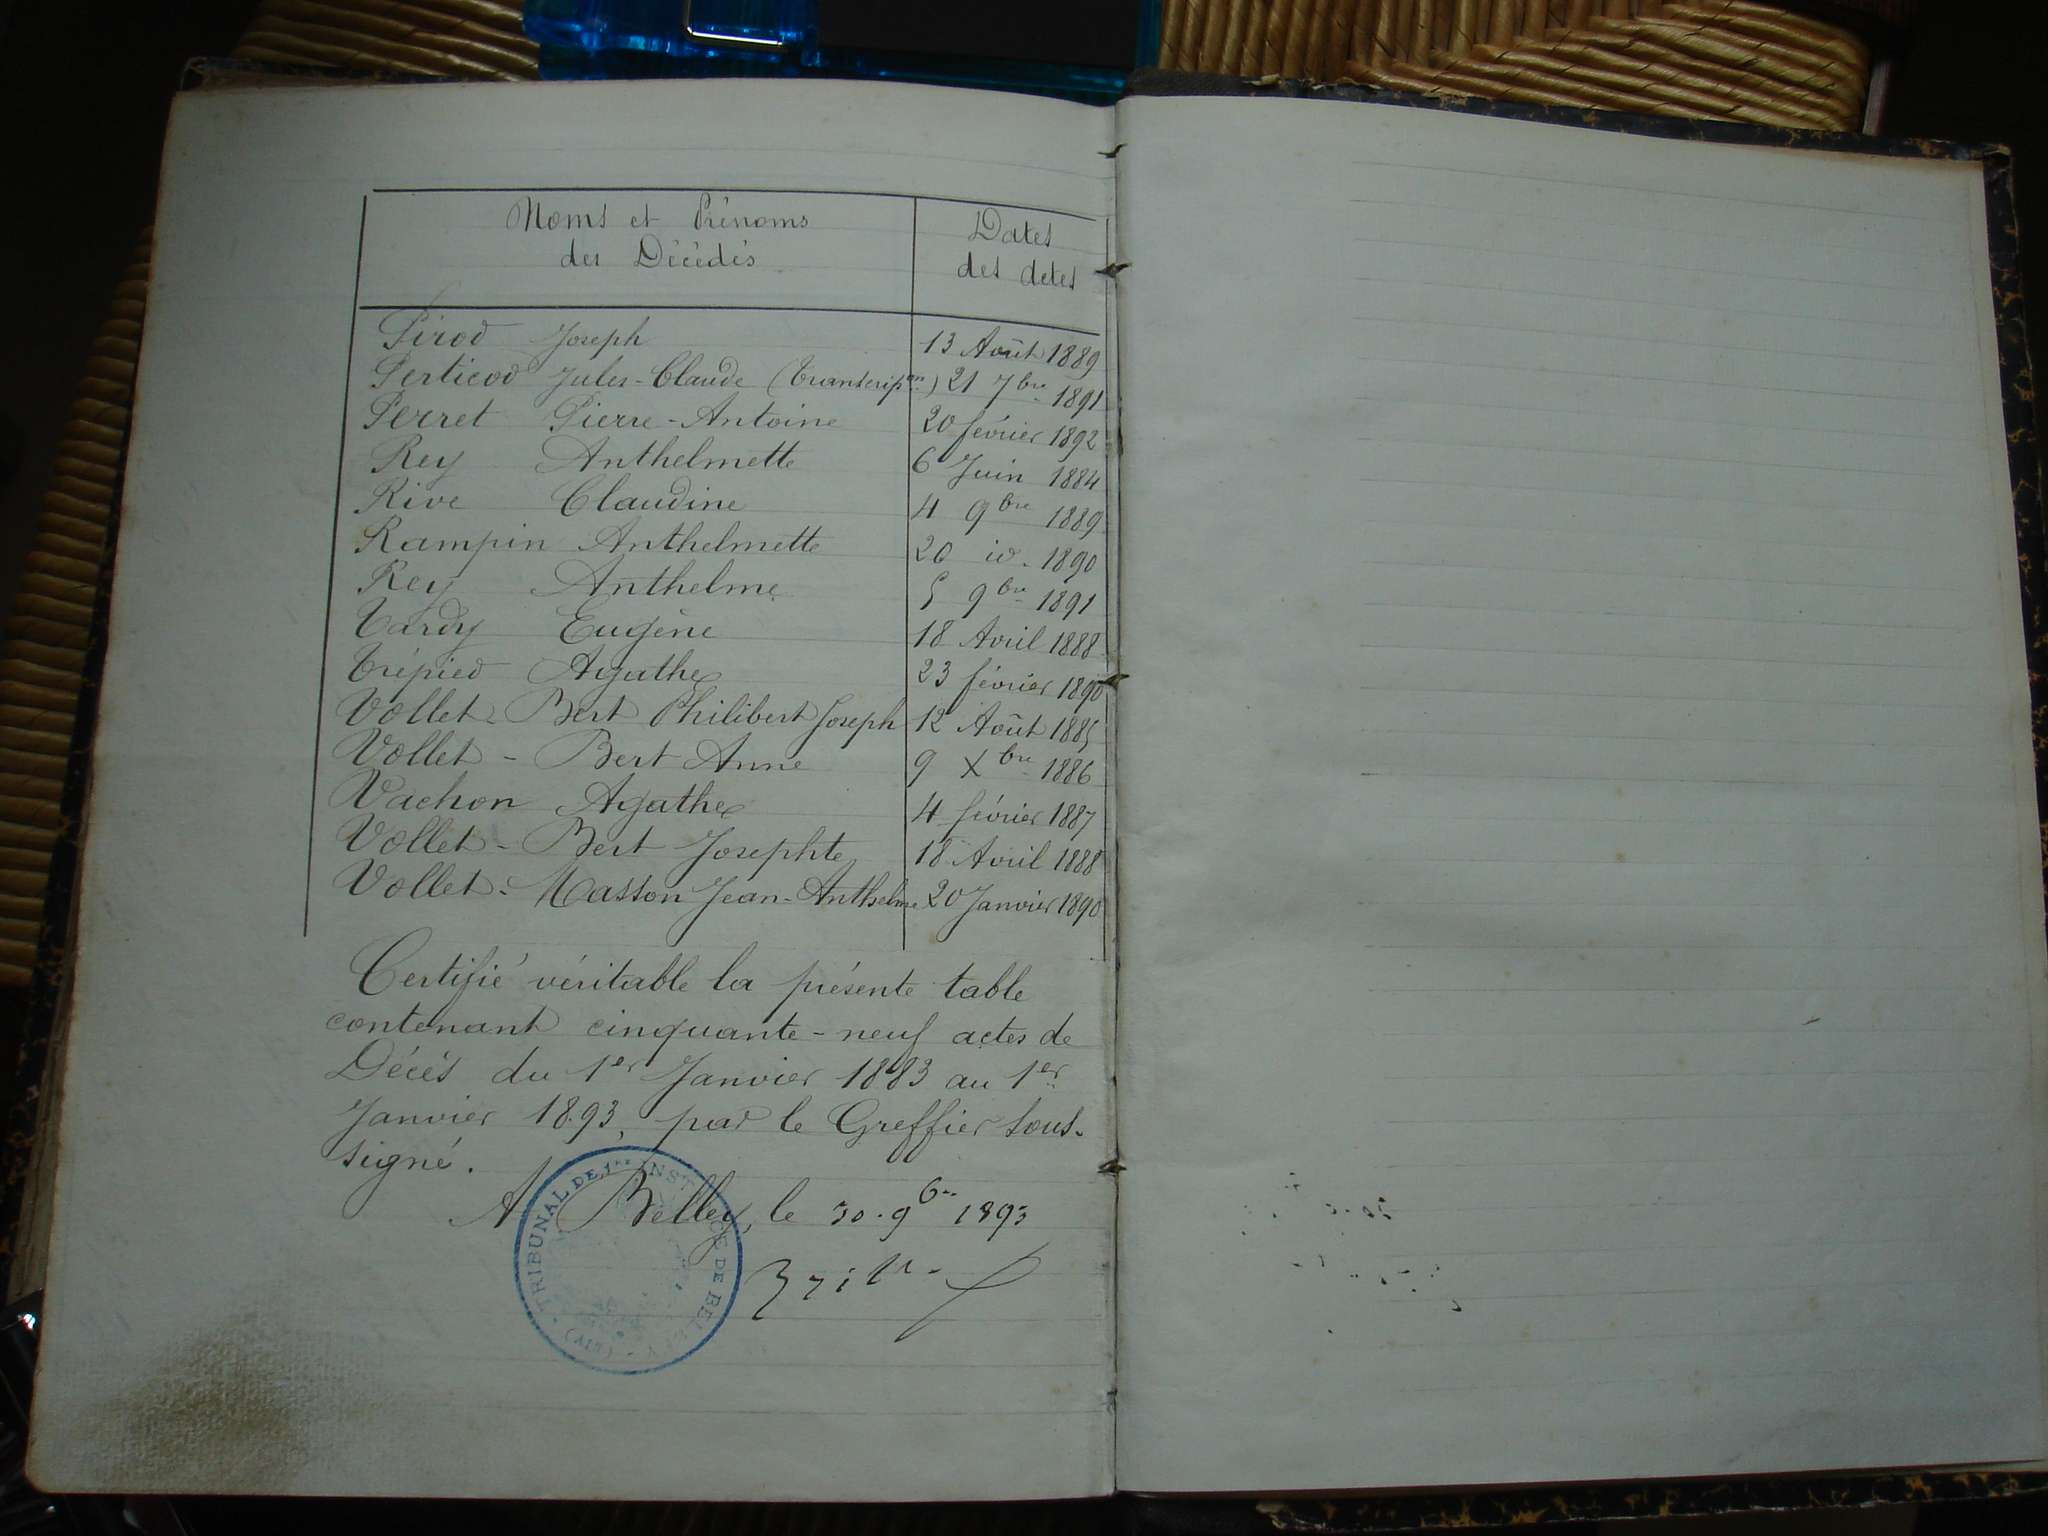 Noms et Prénoms
des Décédés
Dates
des actes
Pirod Joseph 13 Août 1889
Perticod Jules-Claude (transcripon) 21 7bre 1891
Perret Pierre-Antoine 20 février 1892
Rey Anthelmette 6 Juin 1884
Rive Claudine 4 9bre 1889
Rampin Anthelmette 20 id. 1890
Rey Anthelme 5 9bre 1891
Tardy Eugène 18 Avril 1888
Trépied Agathe 23 février 1890
Vollet-Bert Philibert Joseph 12 Août 1885
Vollet-Bert Anne 9 Xbre 1886
Vachon Agathe 4 février 1887
Vollet-Bert Josephte 18 Avril 1888
Vollet-Masson Jean-Anthelme 20 Janvier 1890
Certifié véritable la présente table
contenant cinquante-neuf actes de
Décès du 1er Janvier 1883 au 1er
Janvier 1893, par le Greffier Sous-
signé.
A Belley, le 30 9bre 1893
TRIBUNAL DE 1re INSTANCE DE BELLEY (AIN)